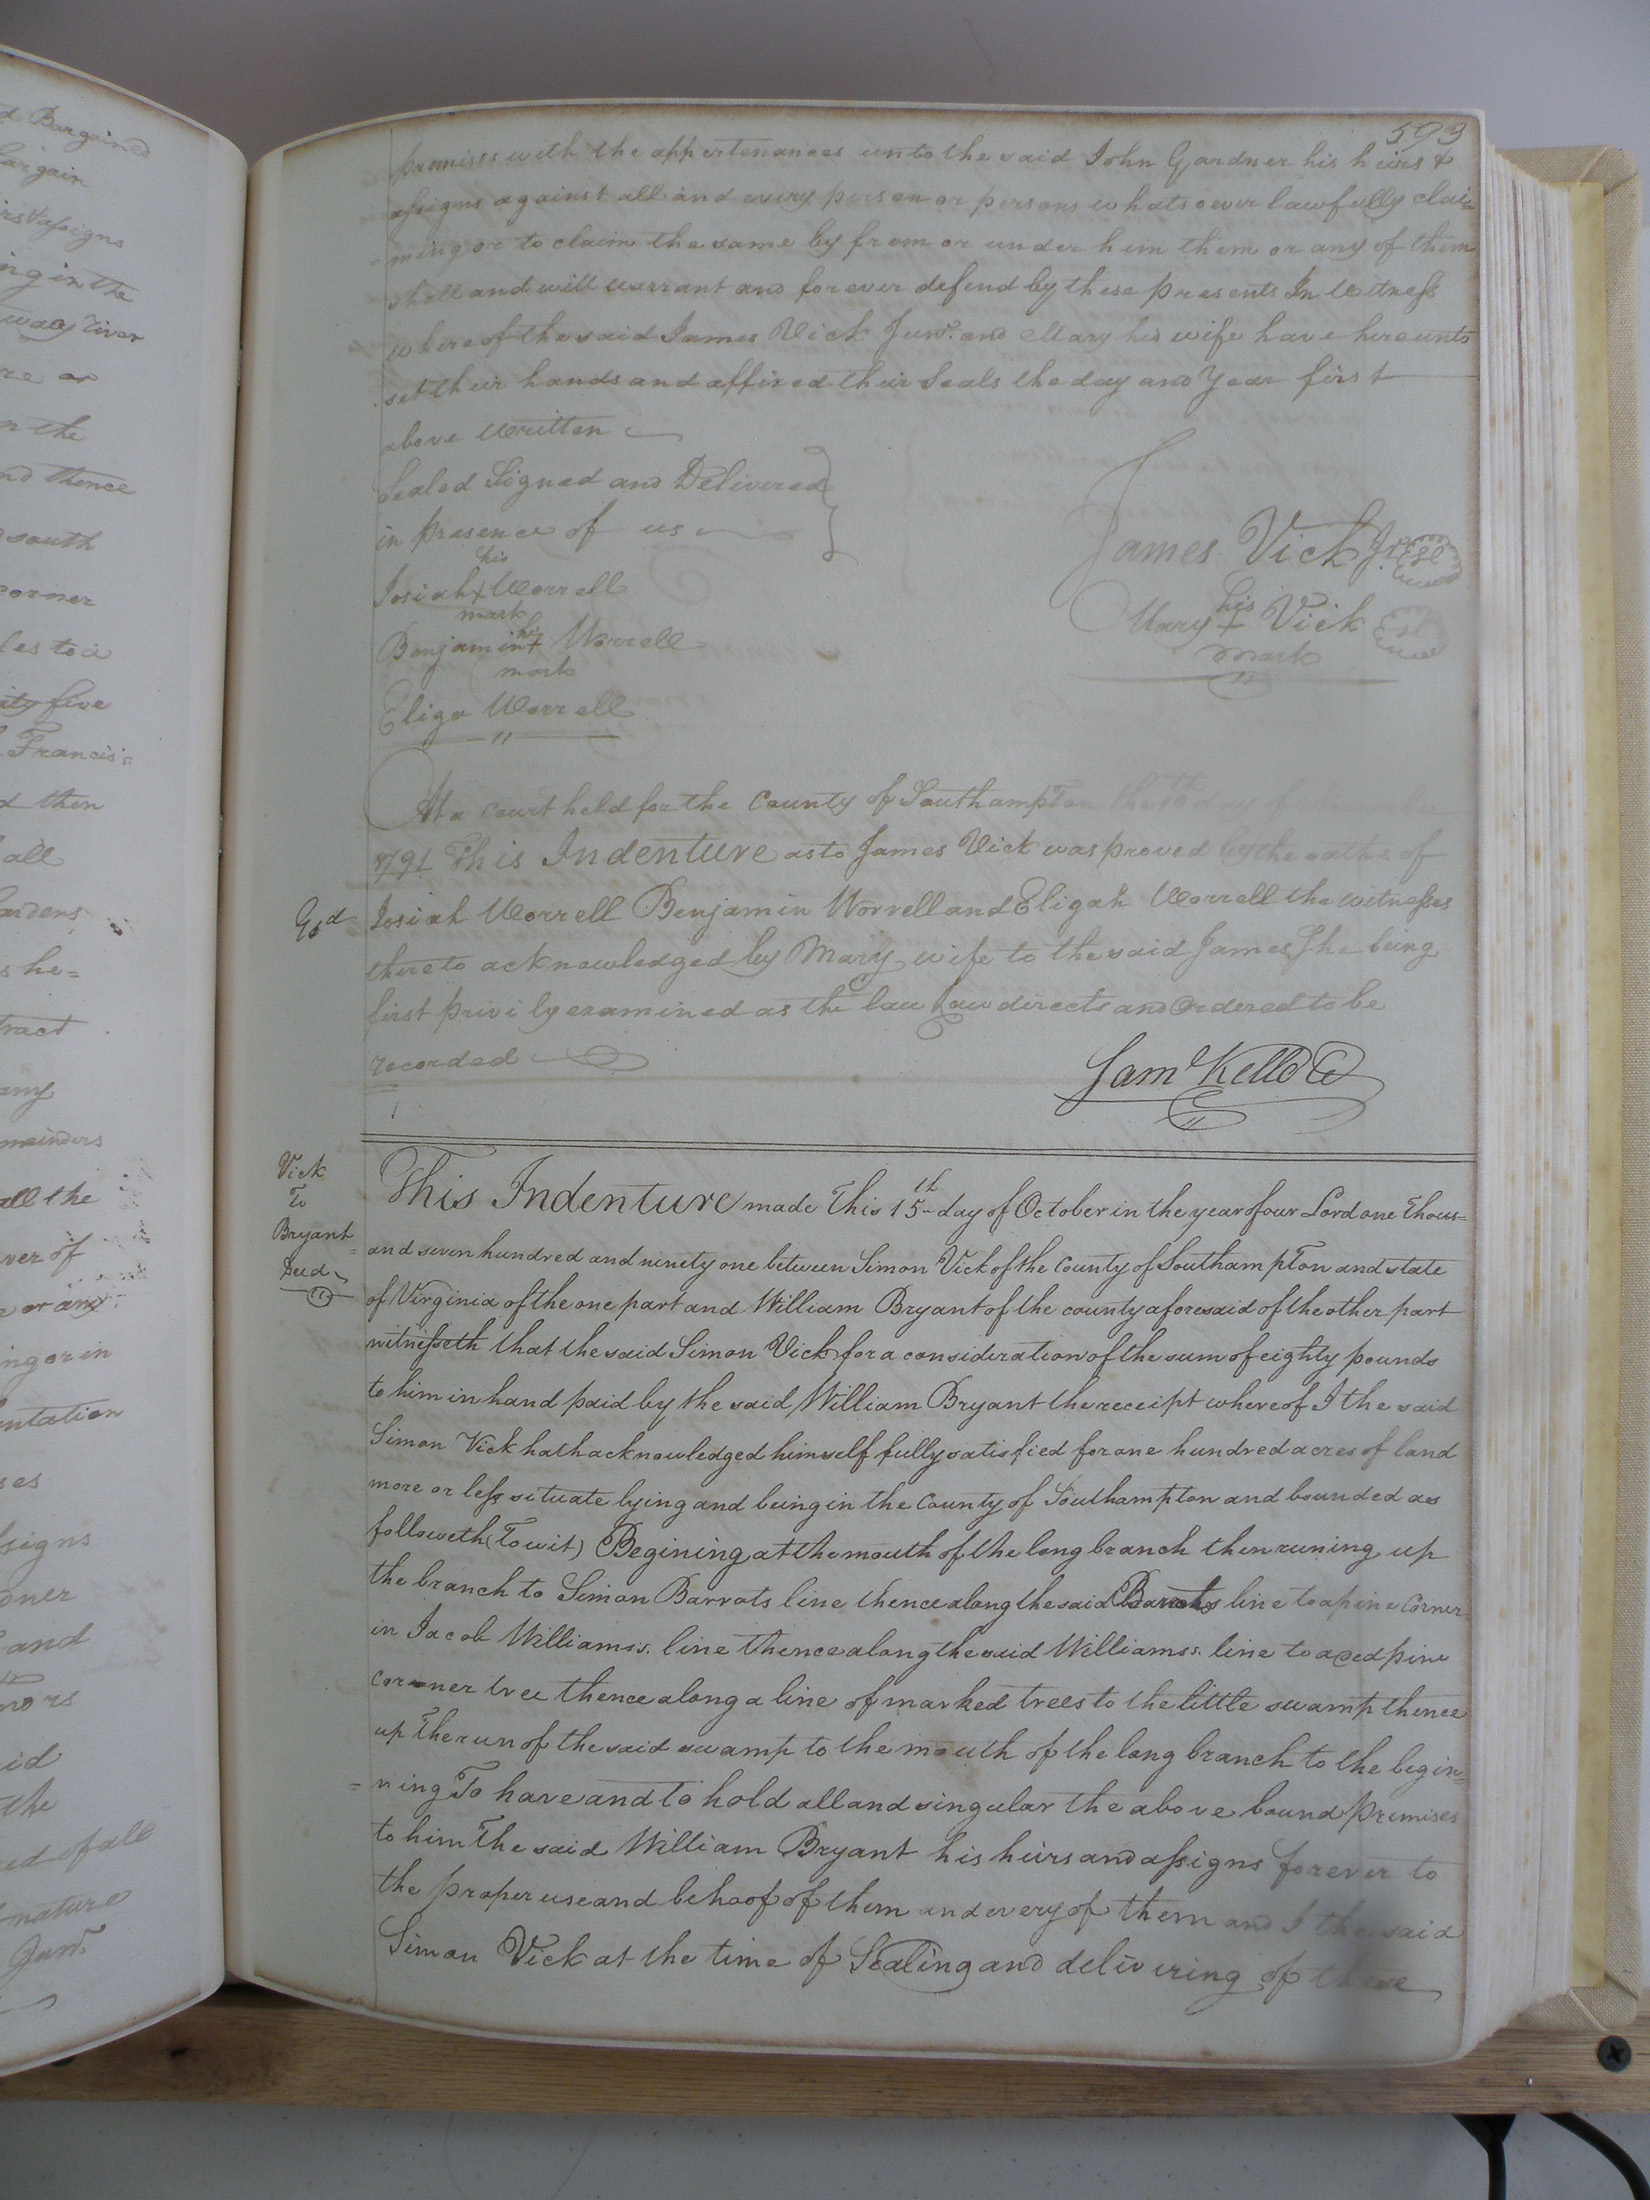 593
premises with the appertenances unto the said John Gardner his heirs &
assigns against all and every person or persons whatsoever lawfully clai=
=ming or to claim the same by from or under him them or any of them
shall and will warrant and forever defend by these presents In Witness
whereof the said James Vick Junr. and Mary his wife have hereunto
set their hands and affixed their Seals the day and Year first
above Written
Sealed Signed and Delivered
in presence of us
his
Josiah X Worrell
mark
his
Benjamin + Worrell
mark
Eliga Worrell
James Vick Jr.
his
Mary + Vick
mark
At a Court held for the County of Southampton the
1791 This Indenture as to James Vick was proved by the oaths of
Josiah Worrell Benjamin Worrell and Eligah Worrell the witnesses
thereto acknowledged by Mary wife to the said James She being
first privily examined as the law Law directs and Ordered to be
recorded
Saml Kello
Vick
To
Bryant
Deed
This Indenture made This 15th day of October in the year of our Lord one Thous=
and seven hundred and ninety one between Simon Vick of the County of Southampton and state
of Virginia of the one part and William Bryant of the county aforesaid of the other part
witnesseth that the said Simon Vick for a consideration of the sum of eighty pounds
to him in hand paid by the said William Bryant the receipt whereof I the said
Simon Vick hath acknowledged himself fully satisfied for one hundred acres of land
more or less situate lying and being in the County of Southampton and bounded as
followeth (To wit) Begining at the mouth of the long branch then runing up
the branch to Simon Barrots line thence along the said Barrots line to a pine Corner
in Jacob Williams's. line thence along the said Williams's. line to a red pine
corner tree thence along a line of marked trees to the little swamp thence
up The run of the said swamp to the mouth of the long branch to the begin=
=ning To have and to hold all and singular the above bound premises
to him The said William Bryant his heirs and assigns forever to
the proper use and behoof of them and every of them and I the said
Simon Vick at the time of Sealing and delivering of these